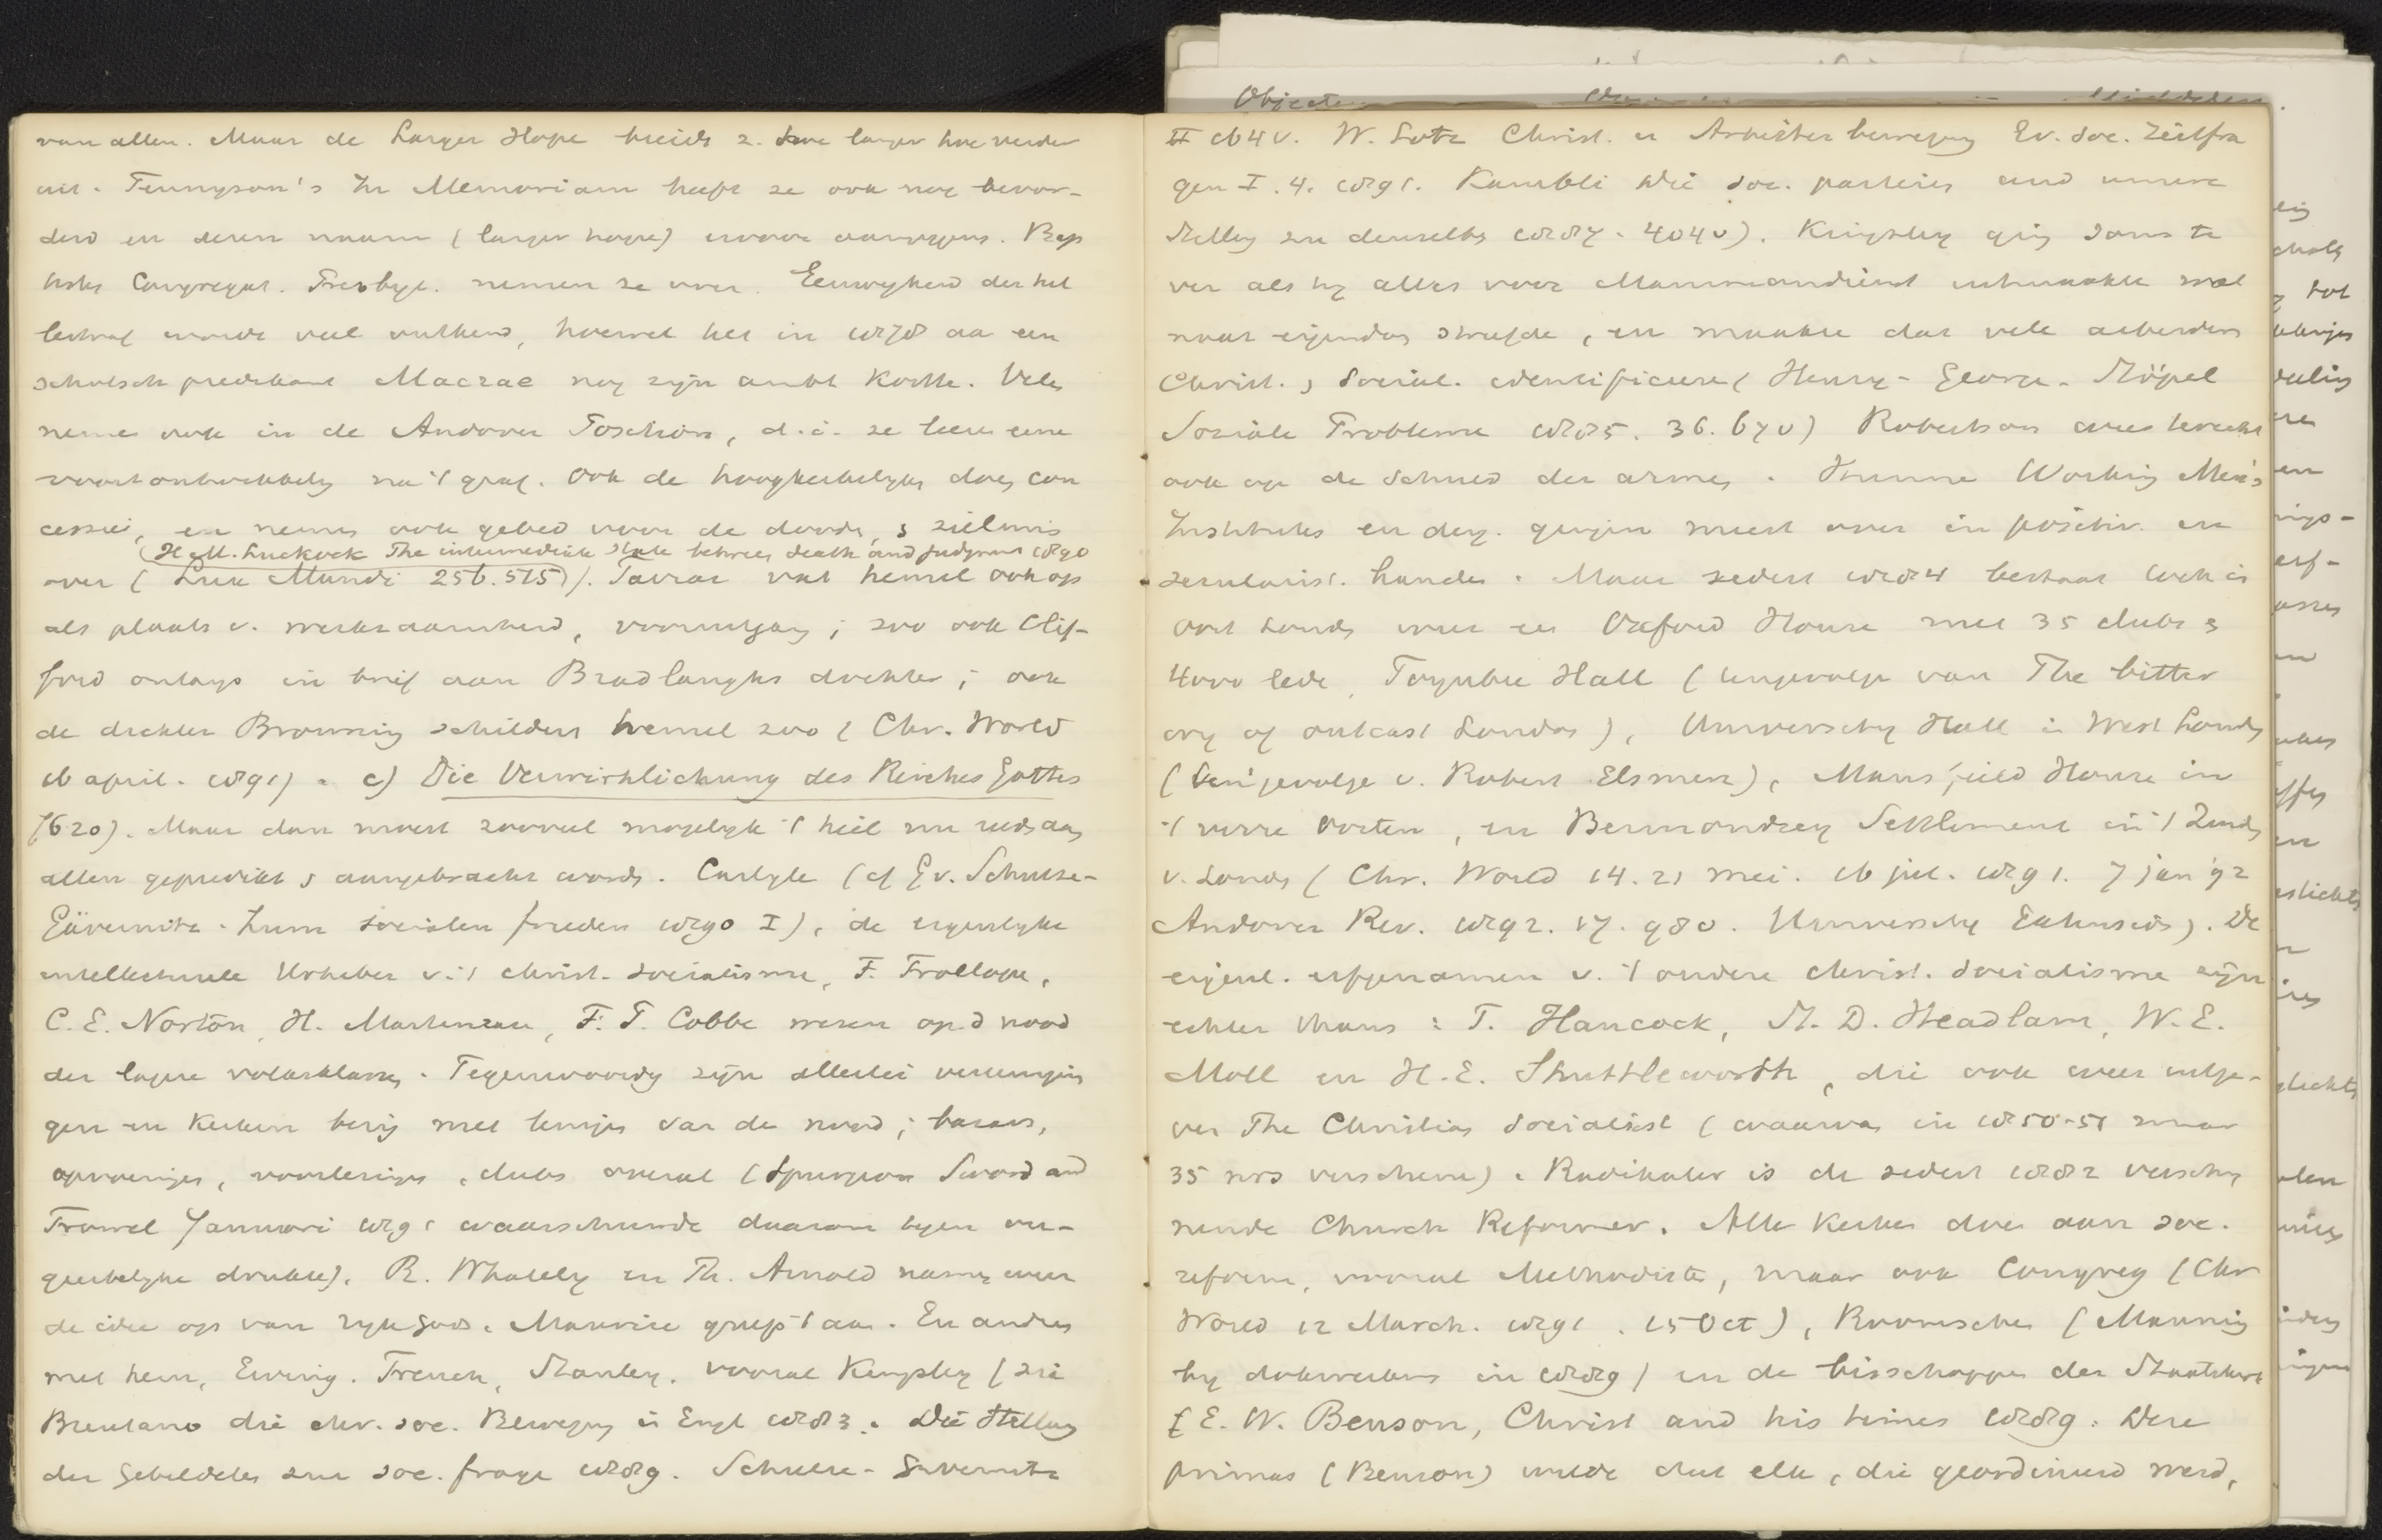 van allen. Maar de Larger Hope breidt z. hoe langer hoe verder
uit. Tennyson's In Memoriam heeft ze ook nog bevor-
derd en deren naam (larger hope) ervoor aangegeven. Bap
tisten Congregat. Presbyt. nemen ze over. Eeuwigheid der hel
lestraf wordt veel ontkend, hoewel het in 1878 aa een
schotsch predikant Macrae nog zijn ambt kostte. Vele
nemen ook in de Andover Positions, d.i. ze leeren eene
voortontwikkeling na 't graf. Ook de hoogkerkelijken doen con
cessies, en nemen ook gebed voor de dooden, & zielmis
(H. M. Luckock The intermediate State between death and judgment 1890
over (Lux Mundi 256. 515)). Farrar vat hemel ook op
als plaats v. werkzaamheid, vooruitgang; zoo ook Clif-
ford onlangs in brief aan Bradlaughs dochter; ook
de dichter Browning schildert hemel zoo (Chr. World
16 april. 1891). c) Die Verwirklichung des Reiches Gottes
(620). Maar dan moest zooveel mogelijk 't heil nu reeds aan
allen gepredikt & aangebracht worden. Carlyle (cf G v. Schulze-
Gävernitz. Zum socialen frieden 1890 I), de eigenlijke
intellectueele Urheber v. 't christ. socialisme, F. Trollope,
C. E. Norton, H. Martineau, F. P. Cobbe wezen op d nood
der lagere volksklassen. Tegenwoordig zijn allerlei vereenigin
gen en Kerken bezig met lenigen van de nood; bazars,
opvoeringen, voorlezingen, clubs overal (Spurgeon Sword and
Trowel Januari 1891 waarschuwde daarom tegen on-
geestelijke drukte). R. Whately en Th. Arnold namen weer
de idee op van rijk Gods. Maurice greep 't aan. En anderen
met hem, Ewing. Trench, Stanley. vooral Kingsley (zie
Brentano die chr. soc. Bewegung in Engl 1883. Die Stellung
der Gebildeten zur soc. frage 1889. Schulze-Gävernitz
II 164 v. W. Lotz Christ. u Arbeiterbewegung Ev. Soc. Zeitfra
gen I. 4. 1891. Kambli Die soc. parteien und unsere
Stellung zu denselben 1887. 404 v). Kingsley ging soms te
ver als hij alles voor Mammondienst uitmaakte wat
naar eigendom streefde, en maakte dat vele arbeiders
Christ. & Social. identificeeren (Henry-George. Stöpel
Soziale Probleme 1885. 36. 67 v) Robertson wees terecht
ook op de Schuld der armen. Hunne Working Men's
Institutes en derg. gingen meest over in positiv. en
secularist. handen. Maar sedert 1884 bestaat toch in
Oost Londen weer een Oxford House met 35 clubs &
4000 leden, Toynbee Hall (tengevolge van The bitter
cry of outcast London), University Hall in West Londen
(tengevolge v. Robert Elsmere), Mansfield House in
't verre Oosten, en Bermondsey Settlement in 't Zuiden
v. Londen (Chr. World 14. 21 mei. 16 jul. 1891. 7 jan 92
Andover Rev. 1892. 17. 980. University Extension). De
eigenl. erfgenamen v. 't oudere christ. socialisme zijn
echter thans: T. Hancock, S. D. Headlam, W. E.
Moll en H. E. Shuttleworth, die ook weer uitge-
ven The Christian Socialist (waarvan in 1850-51 maar
35 nrs verschenen). Radikaler is de sedert 1882 verschij
nende Church Reformer. Alle Kerken doen aan soc.
reform, vooral Methodisten, maar ook Congreg (Chr
World 12 March. 1891. 15 Oct), Roomschen (Manning
bij dokwerkers in 1889) en de bisschoppen der Staatskerk
(E. W. Benson, Christ and his times 1889. Deze
primas (Benson) wilde dat elk, die geordineerd werd,